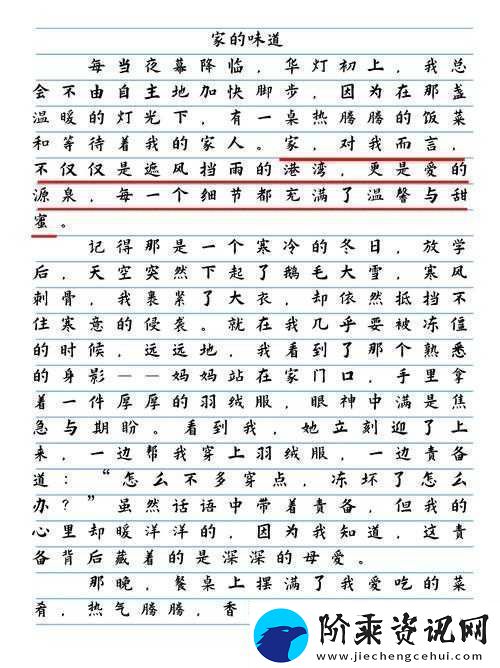 家的味道
每当夜幕降临，华灯初上，我总
会不由自主地加快脚步，因为在那盏
温暖的灯光下，有一桌热腾腾的饭菜
和等待着我的家人。家，对我而言，
不仅仅是遮风挡雨的港湾，更是爱的
源泉，每一个细节都充满了温馨与甜
蜜。
记得那是一个寒冷的冬日，放学
后，天空突然下起了鹅毛大雪，寒风
刺骨，我裹紧了大衣，却依然抵挡不
住寒意的侵袭。就在我几乎要被冻僵
的时候，远远地，我看到了那个熟悉
的身影——妈妈站在家门口，手里拿
着一件厚厚的羽绒服，眼神中满是焦
急与期盼。看到我，她立刻迎了上
来，一边帮我穿上羽绒服，一边责备
道：“怎么不多穿点，冻坏了怎么
办？”虽然话语中带着责备，但我的
心里却暖洋洋的，因为我知道，这责
备背后藏着的是深深的母爱。
那晚，餐桌上摆满了我爱吃的菜
肴，热气腾腾，香
阶乘资讯网
www.jiechengcehui.com